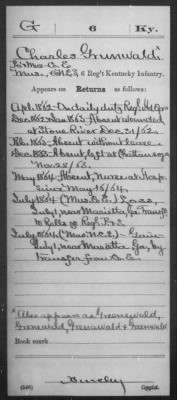 G 6 Ky.
Charles Grunwald*
Co. E, 6 Reg't Kentucky Infantry.
Appears on Returns as follows:
Apl. 1862 On daily duty Regt
Dec. 1862 Jan. 1863 Absent wounded
at Stone River Dec. 31/62
Feb. 1863 Absent without leave
Dec. 1863 Absent, left at Chattanooga
Nov. 25/63.
May 1864 Absent, Nurse at Hosp.
since May 16/64
July 1864 Loss,
July, near Marietta, Ga. Transf.
July 1864 Gain
July, near Marietta Ga, by
transfer from Co. E
*Also appears as Greenewald,
Grenwald & Greenwald
Book mark
(546) Copyist.